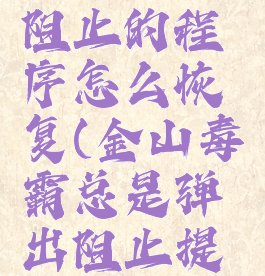 阻止的程
序怎么恢
复(金山毒
霸总是弹
出阻止提